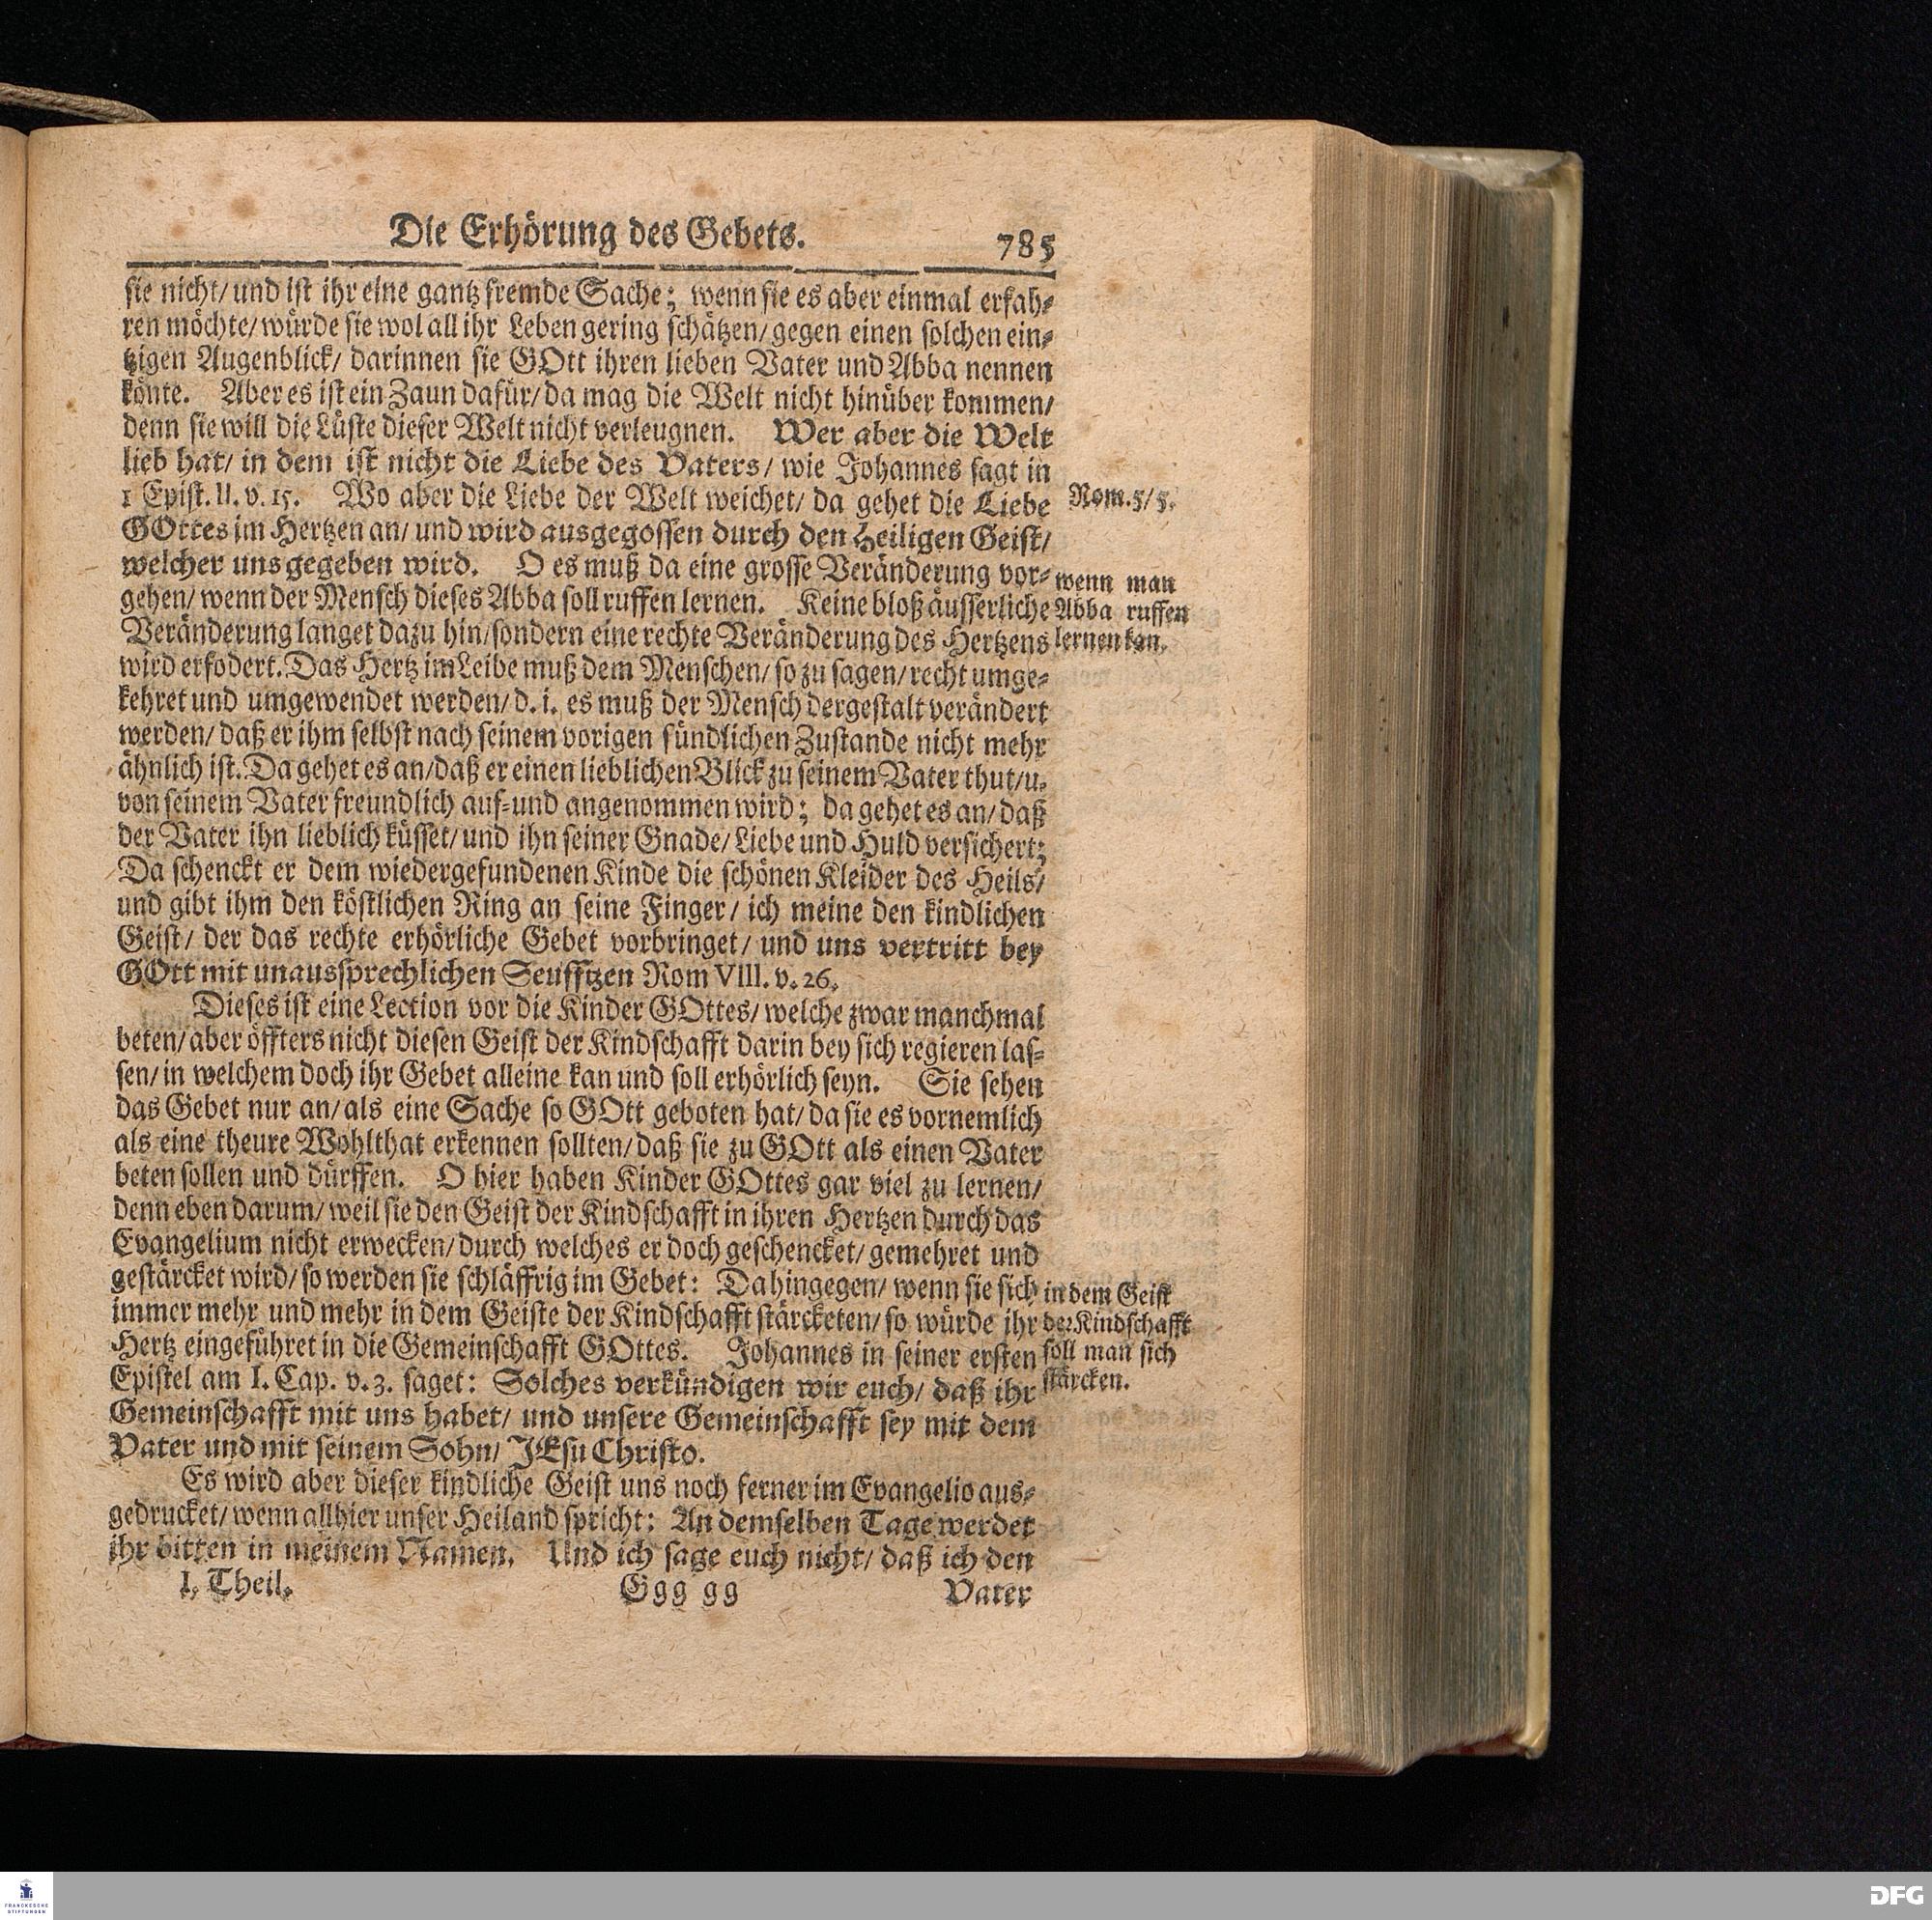 Die Erhörung des Gebets. 785
sie nicht/ und ist ihr eine gantz fremde Sache; wenn sie es aber einmal erfah-
ren möchte/ würde sie wol all ihr Leben gering schätzen/ gegen einen solchen ein-
tzigen Augenblick/ darinnen sie GOtt ihren lieben Vater und Abba nennen
könte. Aber es ist ein Zaun dafür/ da mag die Welt nicht hinüber kommen/
denn sie will die Lüste dieser Welt nicht verleugnen. Wer aber die Welt
lieb hat/ in dem ist nicht die Liebe des Vaters/ wie Johannes sagt in
1 Epist. II. v. 15. Wo aber die Liebe der Welt weichet/ da gehet die Liebe
Rom. 5/ 5.
GOttes im Hertzen an/ und wird ausgegossen durch den Heiligen Geist/
welcher uns gegeben wird. O es muß da eine grosse Veränderung vor-
gehen/ wenn der Mensch dieses Abba soll ruffen lernen. Keine bloß äusserliche
Veränderung langet dazu hin/ sondern eine rechte Veränderung des Hertzens
wenn man
Abba ruffen
lernen kan.
wird erfodert. Das Hertz im Leibe muß dem Menschen/ so zu sagen/ recht umge-
kehret und umgewendet werden/ d. i. es muß der Mensch dergestalt verändert
werden/ daß er ihm selbst nach seinem vorigen sündlichen Zustande nicht mehr
ähnlich ist. Da gehet es an/ daß er einen lieblichen Blick zu seinem Vater thut/ u.
von seinem Vater freundlich auf- und angenommen wird; da gehet es an/ daß
der Vater ihn lieblich küsset/ und ihn seiner Gnade/ Liebe und Huld versichert;
Da schenckt er dem wiedergefundenen Kinde die schönen Kleider des Heils/
und gibt ihm den köstlichen Ring an seine Finger/ ich meine den kindlichen
Geist/ der das rechte erhörliche Gebet vorbringet/ und uns vertritt bey
GOtt mit unaussprechlichen Seufftzen Rom VIII. v. 26.
Dieses ist eine Lection vor die Kinder GOttes/ welche zwar manchmal
beten/ aber öffters nicht diesen Geist der Kindschafft darin bey sich regieren las-
sen/ in welchem doch ihr Gebet alleine kan und soll erhörlich seyn. Sie sehen
das Gebet nur an/ als eine Sache so GOtt geboten hat/ da sie es vornemlich
als eine theure Wohlthat erkennen sollten/ daß sie zu GOtt als einen Vater
beten sollen und dürffen. O hier haben Kinder GOttes gar viel zu lernen/
denn eben darum/ weil sie den Geist der Kindschafft in ihren Hertzen durch das
Evangelium nicht erwecken/ durch welches er doch geschencket/ gemehret und
gestärcket wird/ so werden sie schläffrig im Gebet: Dahingegen/ wenn sie sich
immer mehr und mehr in dem Geiste der Kindschafft stärcketen/ so würde ihr
Hertz eingeführet in die Gemeinschafft GOttes. Johannes in seiner ersten
Epistel am I. Cap. v. 3. saget: Solches verkündigen wir euch/ daß ihr
in dem Geist
der Kindschafft
soll man sich
stärcken.
Gemeinschafft mit uns habet/ und unsere Gemeinschafft sey mit dem
Vater und mit seinem Sohn/ JEsu Christo.
Es wird aber dieser kindliche Geist uns noch ferner im Evangelio aus-
gedrucket/ wenn allhier unser Heiland spricht: An demselben Tage werdet
ihr bitten in meinem Namen. Und ich sage euch nicht/ daß ich den
I. Theil. Ggg gg Vater
FRANCKESCHE
STIFTUNGEN
DFG